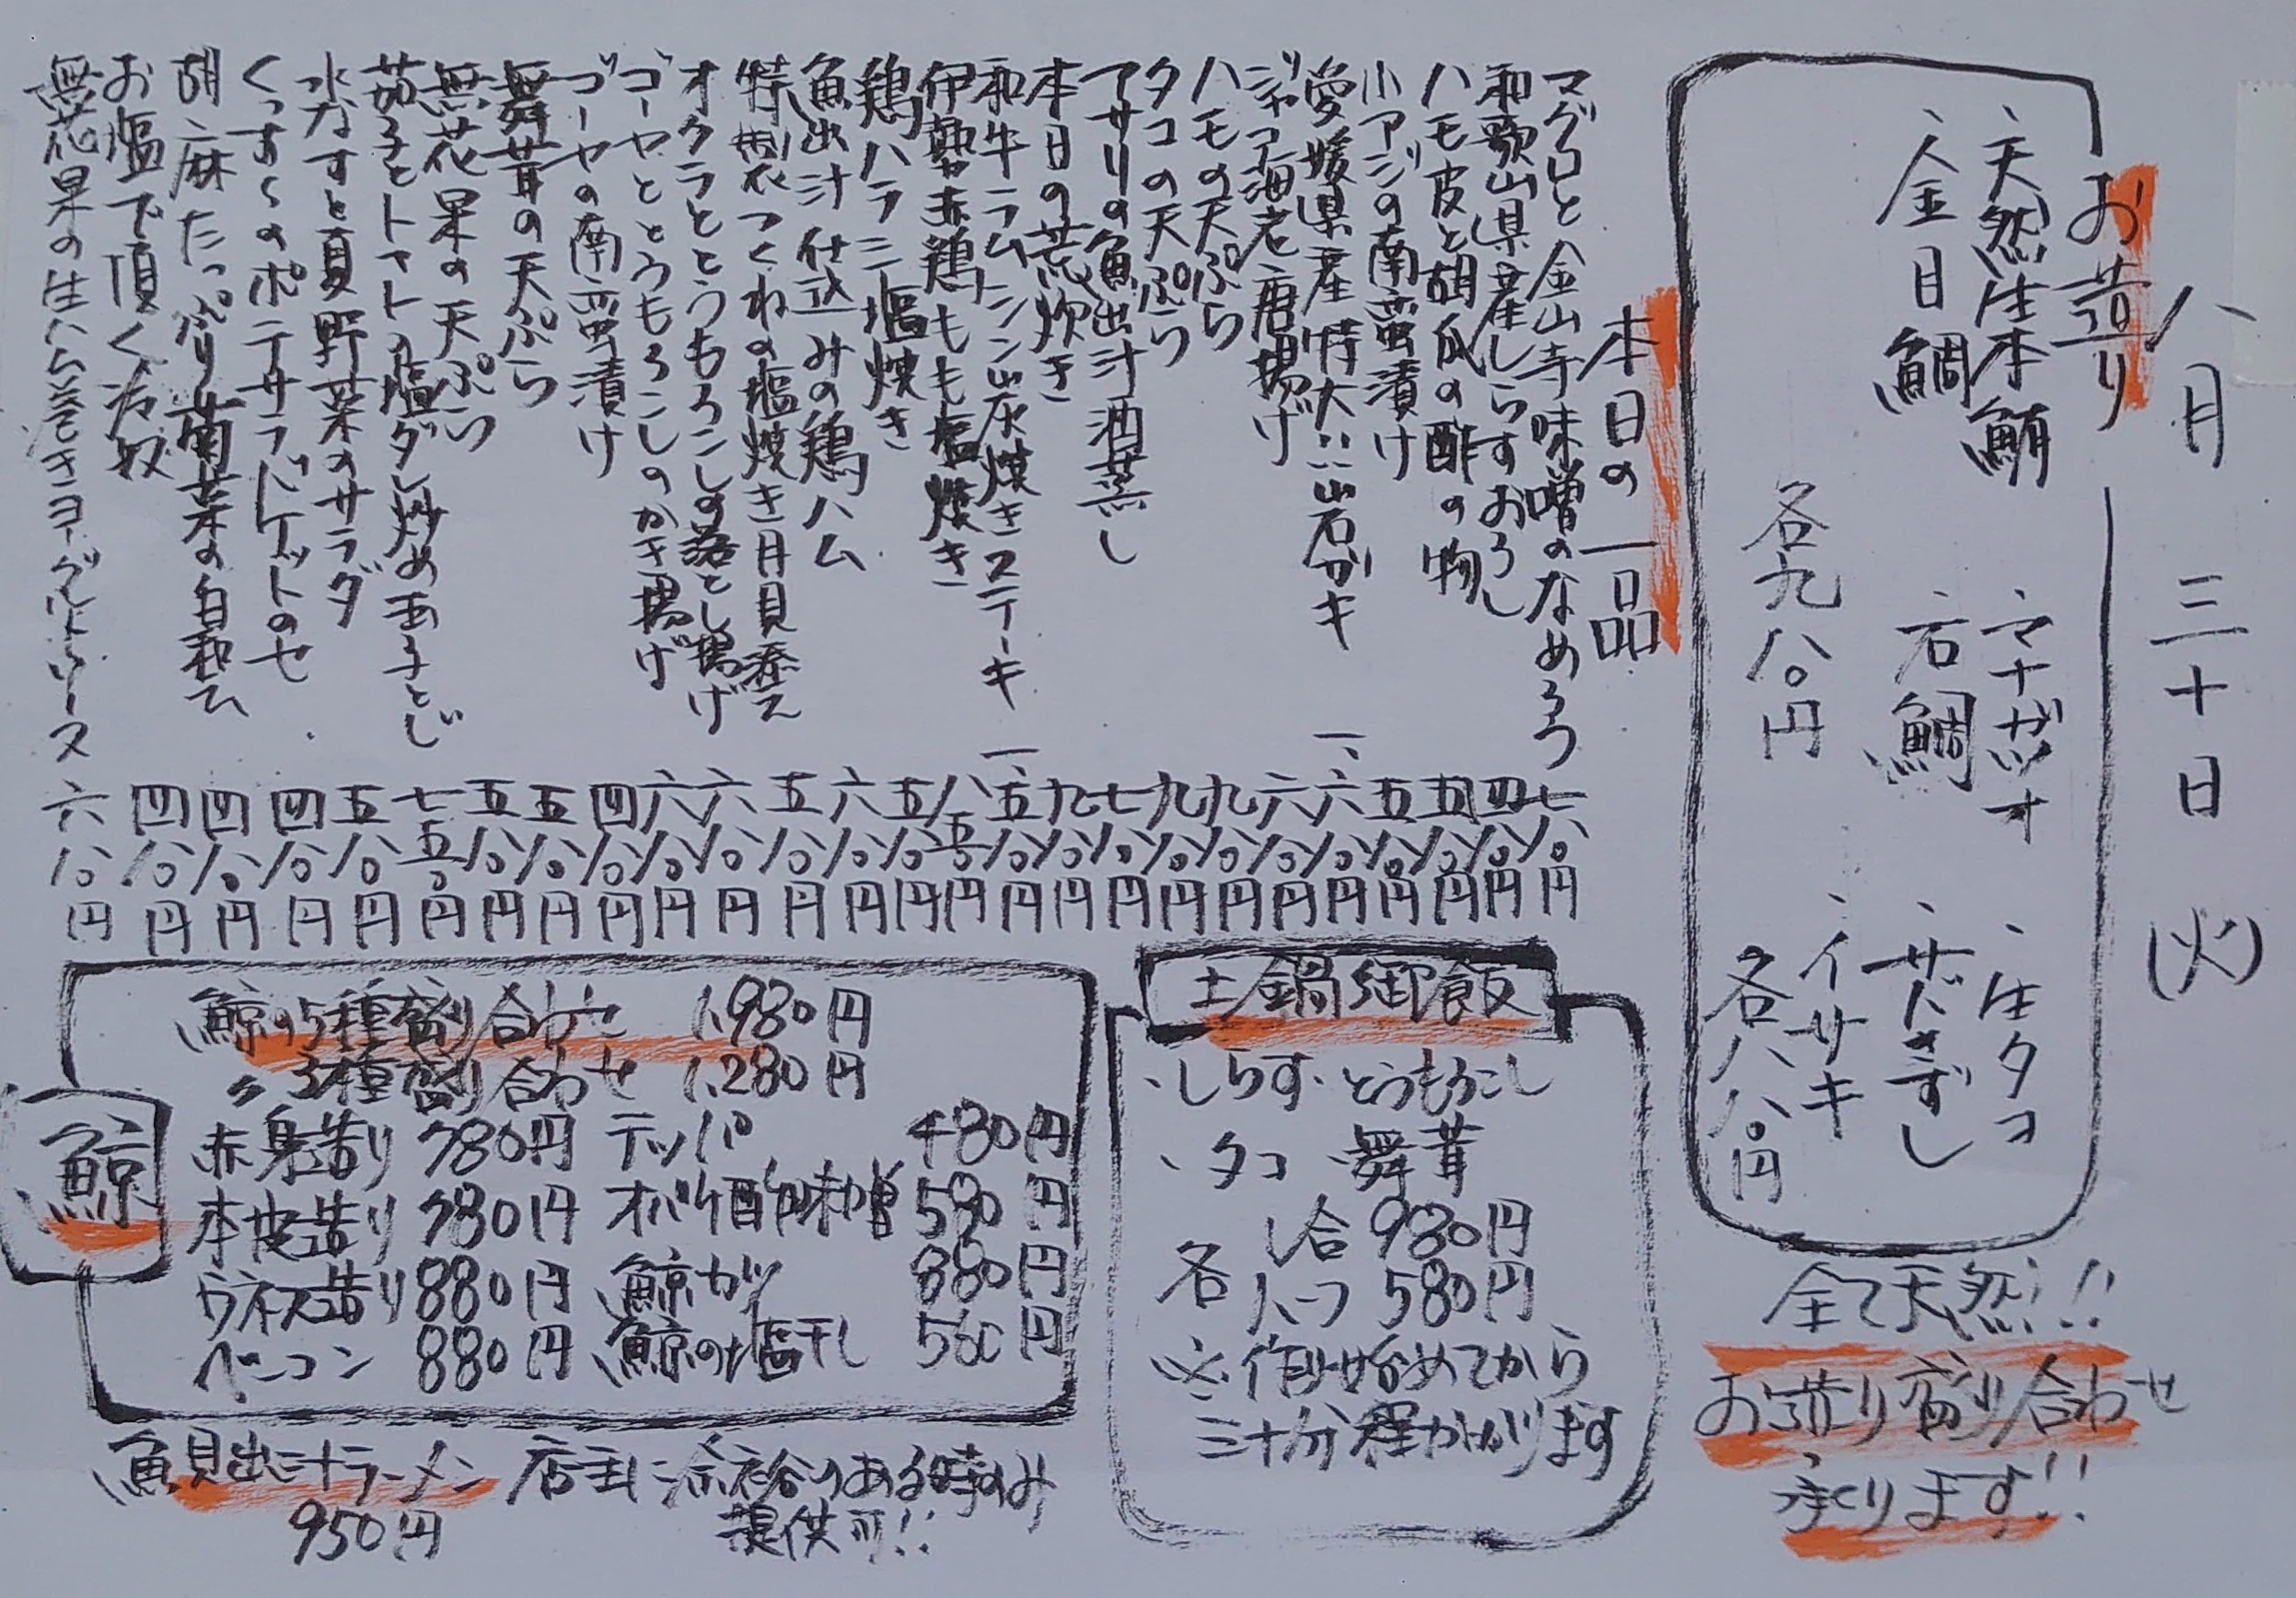 八月三十日(火)
お造り
、天然生本鮪
、金目鯛
、マナガツオ
、石鯛
各九八〇円
、生タコ
、サバきずし
、イサキ
各八八〇円
全て天然!!
お造り盛り合わせ
承ります!!
本日の一品
マグロと金山寺味噌のなめろう 七八〇円
和歌山県産しらすおろし 四八〇円
ハモ皮と胡瓜の酢の物 五八〇円
小アジの南蛮漬け 五八〇円
愛媛県産特大!!岩ガキ 一、六八〇円
ジャコ海老唐揚げ 六八〇円
ハモの天ぷら 九八〇円
タコの天ぷら 九八〇円
アサリの魚出汁酒蒸し 七八〇円
本日の荒炊き 九八〇円
和牛ラムシン炭焼きステーキ 一、五八〇円
伊勢赤鶏もも塩焼き 八五〇円
鶏ハラミ塩焼き 五八〇円
魚出汁仕込みの鶏ハム 六八〇円
特製つくねの塩焼き月見添え 五八〇円
オクラととうもろこしの落とし揚げ 六八〇円
ゴーヤととうもろこしのかき揚げ 六八〇円
ゴーヤの南蛮漬け 四八〇円
舞茸の天ぷら 五八〇円
無花果の天ぷら 五八〇円
茄子とトマトの塩ダレ炒め玉子とじ 七五〇円
水なすと夏野菜のサラダ 五八〇円
くっすくのポテサラバケットのせ 四八〇円
胡麻たっぷり菊菜の白和え 四八〇円
お塩で頂く冷奴 四八〇円
無花果の生ハム巻きヨーグルトソース 六八〇円
土鍋御飯
、しらす、とうもろこし
、タコ、舞茸
各 一合 980円
ハーフ 580円
※作り始めてから
三十分程かかります
鯨
鯨の5種盛り合わせ 1,980円
〃 3種盛り合わせ 1,280円
赤身造り 780円 テッパ 480円
本皮造り 780円 オバケ酢味噌 580円
ウネス造り 880円 鯨カツ 880円
ベーコン 880円 鯨の塩干し 580円
魚貝出汁ラーメン 店主に余裕のある時のみ
950円 提供可!!